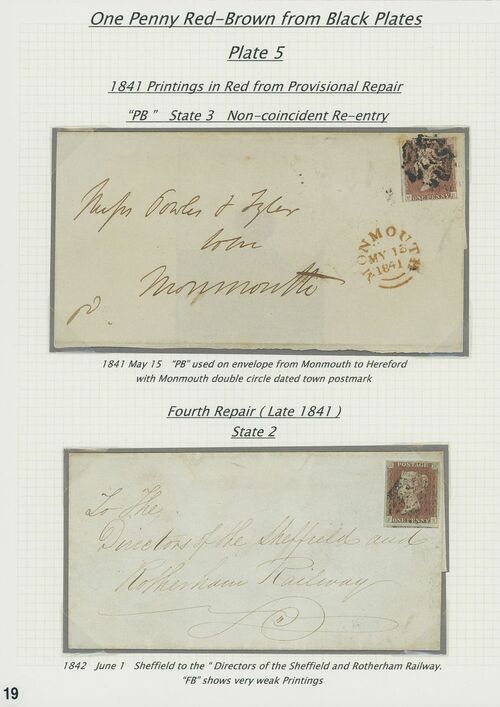 One Penny Red-Brown from Black Plates
Plate 5
1841 Printings in Red from Provisional Repair
"PB" State 3 Non-coincident Re-entry
ONE PENNY
Fowler & Tyler
Monmouth
MONMOUTH
MY 15
1841
pd.
1841 May 15 "PB" used on envelope from Monmouth to Hereford
with Monmouth double circle dated town postmark
Fourth Repair ( Late 1841 )
State 2
POSTAGE
ONE PENNY
To The
Directors of the Sheffield and
Rotherham Railway
1842 June 1 Sheffield to the " Directors of the Sheffield and Rotherham Railway.
"FB" shows very weak Printings
19